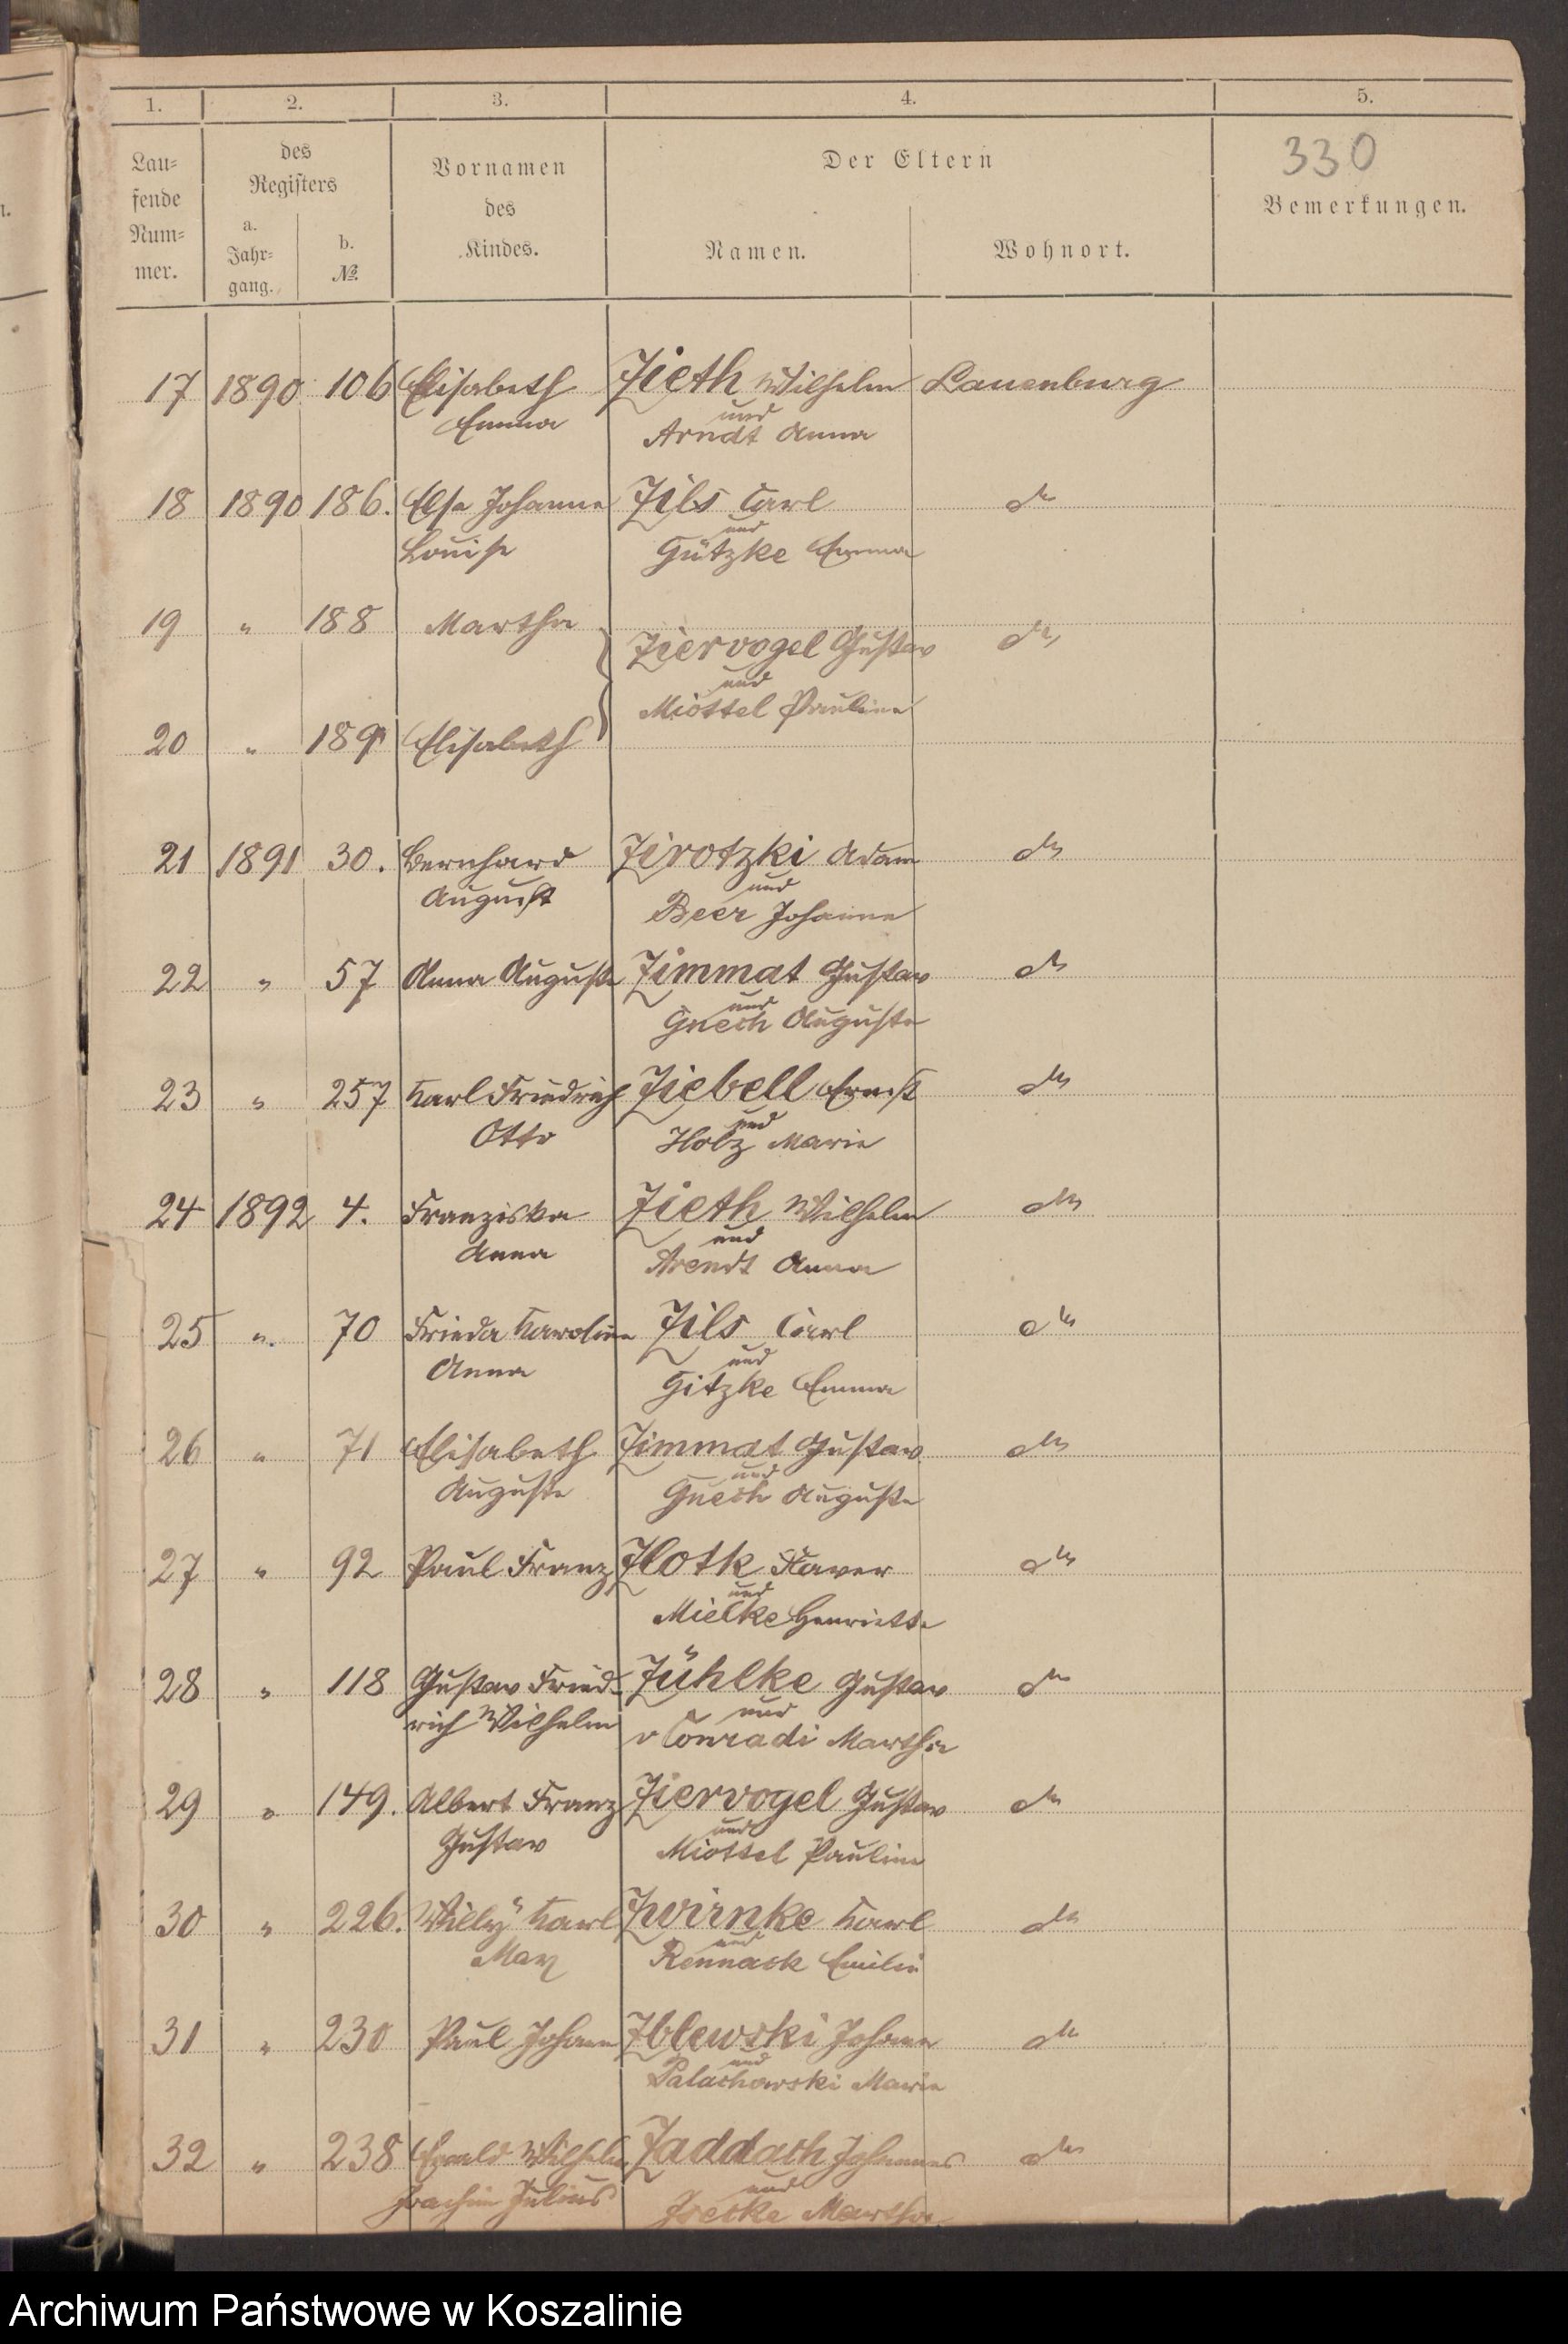 1. 2. 3. 4. 5.
Lau=
fende
Num=
mer.
des
Registers
a.
Jahr=
gang.
b.
№.
Vornamen
des
Kindes.
Der Eltern
Namen. Wohnort.
330
Bemerkungen.
17 1890 106 Elisabeth Zieth Wilhelm Lauenburg
und
Emma Arndt Anna
18 1890 186. Else Johanne Zils Carl do
und
Louise Gützke Emma
19 " 188 Martha
Ziervogel Gustav do
und
Miottel Pauline
20 " 189 Elisabeth
21 1891 30. Bernhard Zirotzki Adam do
und
August Beer Johanne
22 " 57 Anna Auguste Zimmat Gustav do
und
Guech Auguste
23 " 257 Karl Friedrich Ziebell Ernst do
und
Otto Holz Marie
24 1892 4. Franziska Zieth Wilhelm do
und
Anna Arendt Anna
25 " 70 Frieda Karoline Zils Carl do
und
Anna Gitzke Emma
26 " 71 Elisabeth Zimmat Gustav do
und
Auguste Guech Auguste
27 " 92 Paul Franz Zlotk Xaver do
und
Mielke Henriette
28 " 118 Gustav Fried- Zühlke Gustav do
und
rich Wilhelm v Conradi Martha
29 " 149. Albert Franz Ziervogel Gustav do
und
Gustav Miottel Pauline
30 " 226. Willy Karl Zwirnke Karl do
und
Max Rennack Emilie
31 " 230 Paul Johann Zblewski Johann do
und
Palachowski Marie
32 " 238 Ewald Wilhelm Zaddach Johannes do
und
Joachim Julius Jeske Martha
Archiwum Państwowe w Koszalinie